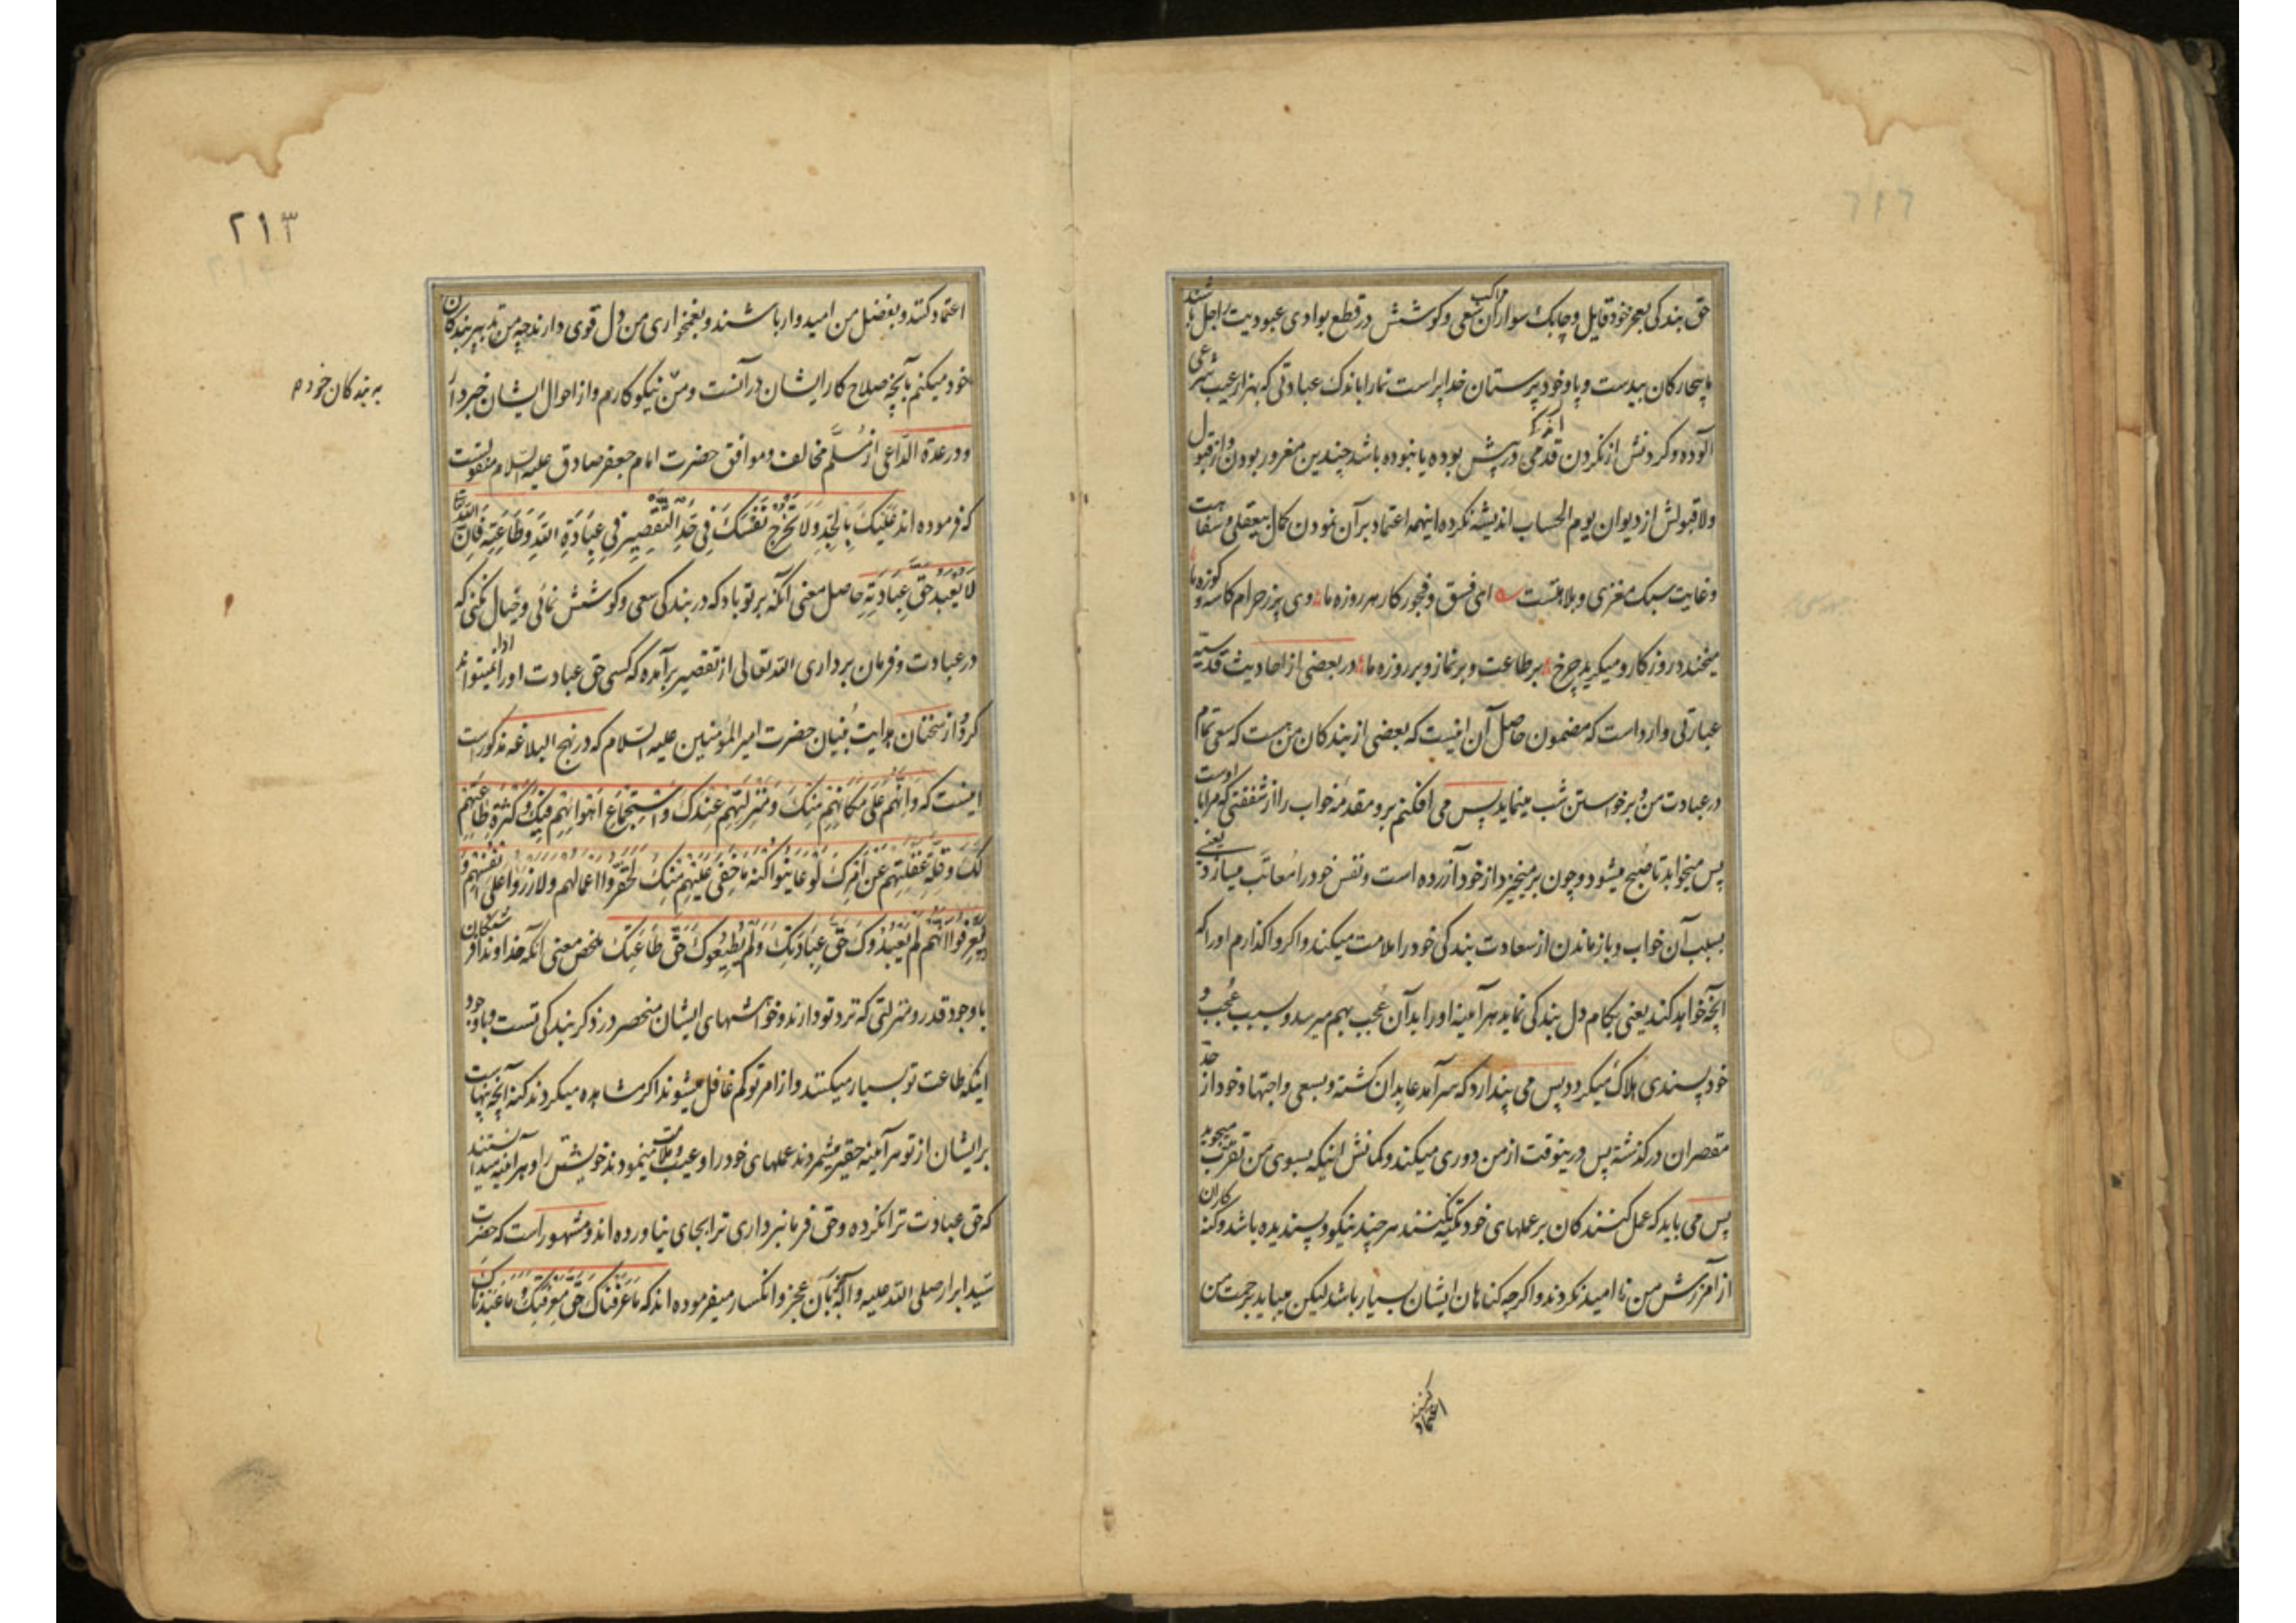 حق بندکی بعجز خود قایل و چابک سواران مراکب سعی و کوشش در قطع بوادی عبودیت راجل باشند
ما بیچارکان بیدست و پا و خود پرستان خدا پراست نما را باندک عبادتی که بهزار عیب شرعی
آلوده و کردنش از نکردن قدمی در پیش بوده یا نبوده باشد چندین مغرور بودن و از قبول
و لا قبولش از دیوان یوم الحساب اندیشه نکرده اینهمه اعتماد بر آن نمودن کمال بیعقلی و سفاهت
و غایت سبک مغزی و بلاهتست ای فسق و فجور کار هر روزه ما وی پر ز حرام کاسه و کوزه ما
میخندد روزکار و میکرید چرخ بر طاعت و بر نماز و بر روزه ما در بعضی از احادیث قدسیه
عبارتی وارد است که مضمون حاصل آن اینست که بعضی از بندکان من هست که سعی تمام
در عبادت من و برخواستن شب مینماید پس می افکنم برو مقدمه خواب را از شفقتی که مرا با اوست
پس میخوابد تا صبح میشود و چون بر میخیزد از خود آزرده است و نفس خود را معاتب میسازد یعنی
بسبب آن خواب و باز ماندن از سعادت بندکی خود را ملامت میکند و اکر واکذارم او را که
آنچه خواهد کند یعنی بکام دل بندکی نماید هر آینه او را بدآن عجب بهم میرسد و بسبب عجب و
خود پسندی هلاک میکردد پس می پندارد که سرآمد عابدان کشته و بسعی و اجتهاد خود از حد
مقصران در کذشته پس درینوقت از من دوری میکند و کمانش اینکه بسوی من تقرب میجوید
پس می باید که عمل کنندکان بر عملهای خود تکیه نکنند هر چند نیکو و پسندیده باشد و کنه کاران
از آمرزش من نا امید نکردند و اکر چه کناهان ایشان بسیار باشد لیکن میباید برحمت من
اعتماد کنند
٢١٣
اعتماد کنند و بفضل من امیدوار باشند و بغمخواری من دل قوی دارند چه من تدبیر بندکان
خود میکنم بآنچه صلاح کار ایشان در آنست و من نیکو کارم و از احوال ایشان خبردار
به بندکان خودم
و در عدة الداعی از مسلم مخالف و موافق حضرت امام جعفر صادق علیه السلام منقولست
که فرموده اند عَلَیْکَ بِالْجِدِّ وَلَا تُخْرِجْ نَفْسَکَ فِی حَدِّ التَّقْصِیرِ فِی عِبَادَةِ اللّٰهِ وَطَاعَتِهِ فَاِنَّ اللّٰهَ تَعَالٰی
لَا یُعْبَدُ حَقَّ عِبَادَتِهِ حاصل معنی آنکه بر تو باد که در بندکی سعی و کوشش نمائی و خیال نکنی که
در عبادت و فرمان برداری الله تعالی از تقصیر بر آمده که کسی حق عبادت او را ادا نمیتواند
کرد و از سخنان هدایت بنیان حضرت امیر المؤمنین علیه السلام که در نهج البلاغه مذکورست
اینست که وَاِنَّهُمْ عَلٰی مَکَانِهِمْ مِنْکَ وَمَنْزِلَتِهِمْ عِنْدَکَ وَاسْتِجْمَاعِ اَهْوَائِهِمْ فِیکَ وَکَثْرَةِ طَاعَتِهِمْ
لَکَ وَقِلَّةِ غَفْلَتِهِمْ عَنْ اَمْرِکَ لَوْ عَایَنُوا کُنْهَ مَا خَفِیَ عَلَیْهِمْ مِنْکَ لَحَقَّرُوا اعمالهم ولازروا علی انفسهم وَ
لَعَرَفُوا اَنَّهُمْ لَمْ یَعْبُدُوکَ حَقَّ عِبَادَتِکَ وَلَمْ یُطِیعُوکَ حَقَّ طَاعَتِکَ ملخص معنی آنکه خداوندا فرشتکان
با وجود قدر و منزلتی که نزد تو دارند و خواهشهای ایشان منحصر در ذکر بندکی تست و با وجود
اینکه طاعت تو بسیار میکنند و از امر تو کم غافل میشوند اکر مشاهده میکردند کنه آنچه پنهانست
بر ایشان از تو هر آینه حقیر میشمردند عملهای خود را و عیب و ملامت مینمودند خویشتن را و هر آینه میدانستند
که حق عبادت ترا نکرده و حق فرمانبرداری ترا بجای نیاورده اند و مشهور است که حضرت
سید ابرار صلی الله علیه و آله بزبان عجز و انکسار میفرموده اند که مَا عَرَفْنَاکَ حَقَّ مَعْرِفَتِکَ وَ مَا عَبَدْنَاکَ